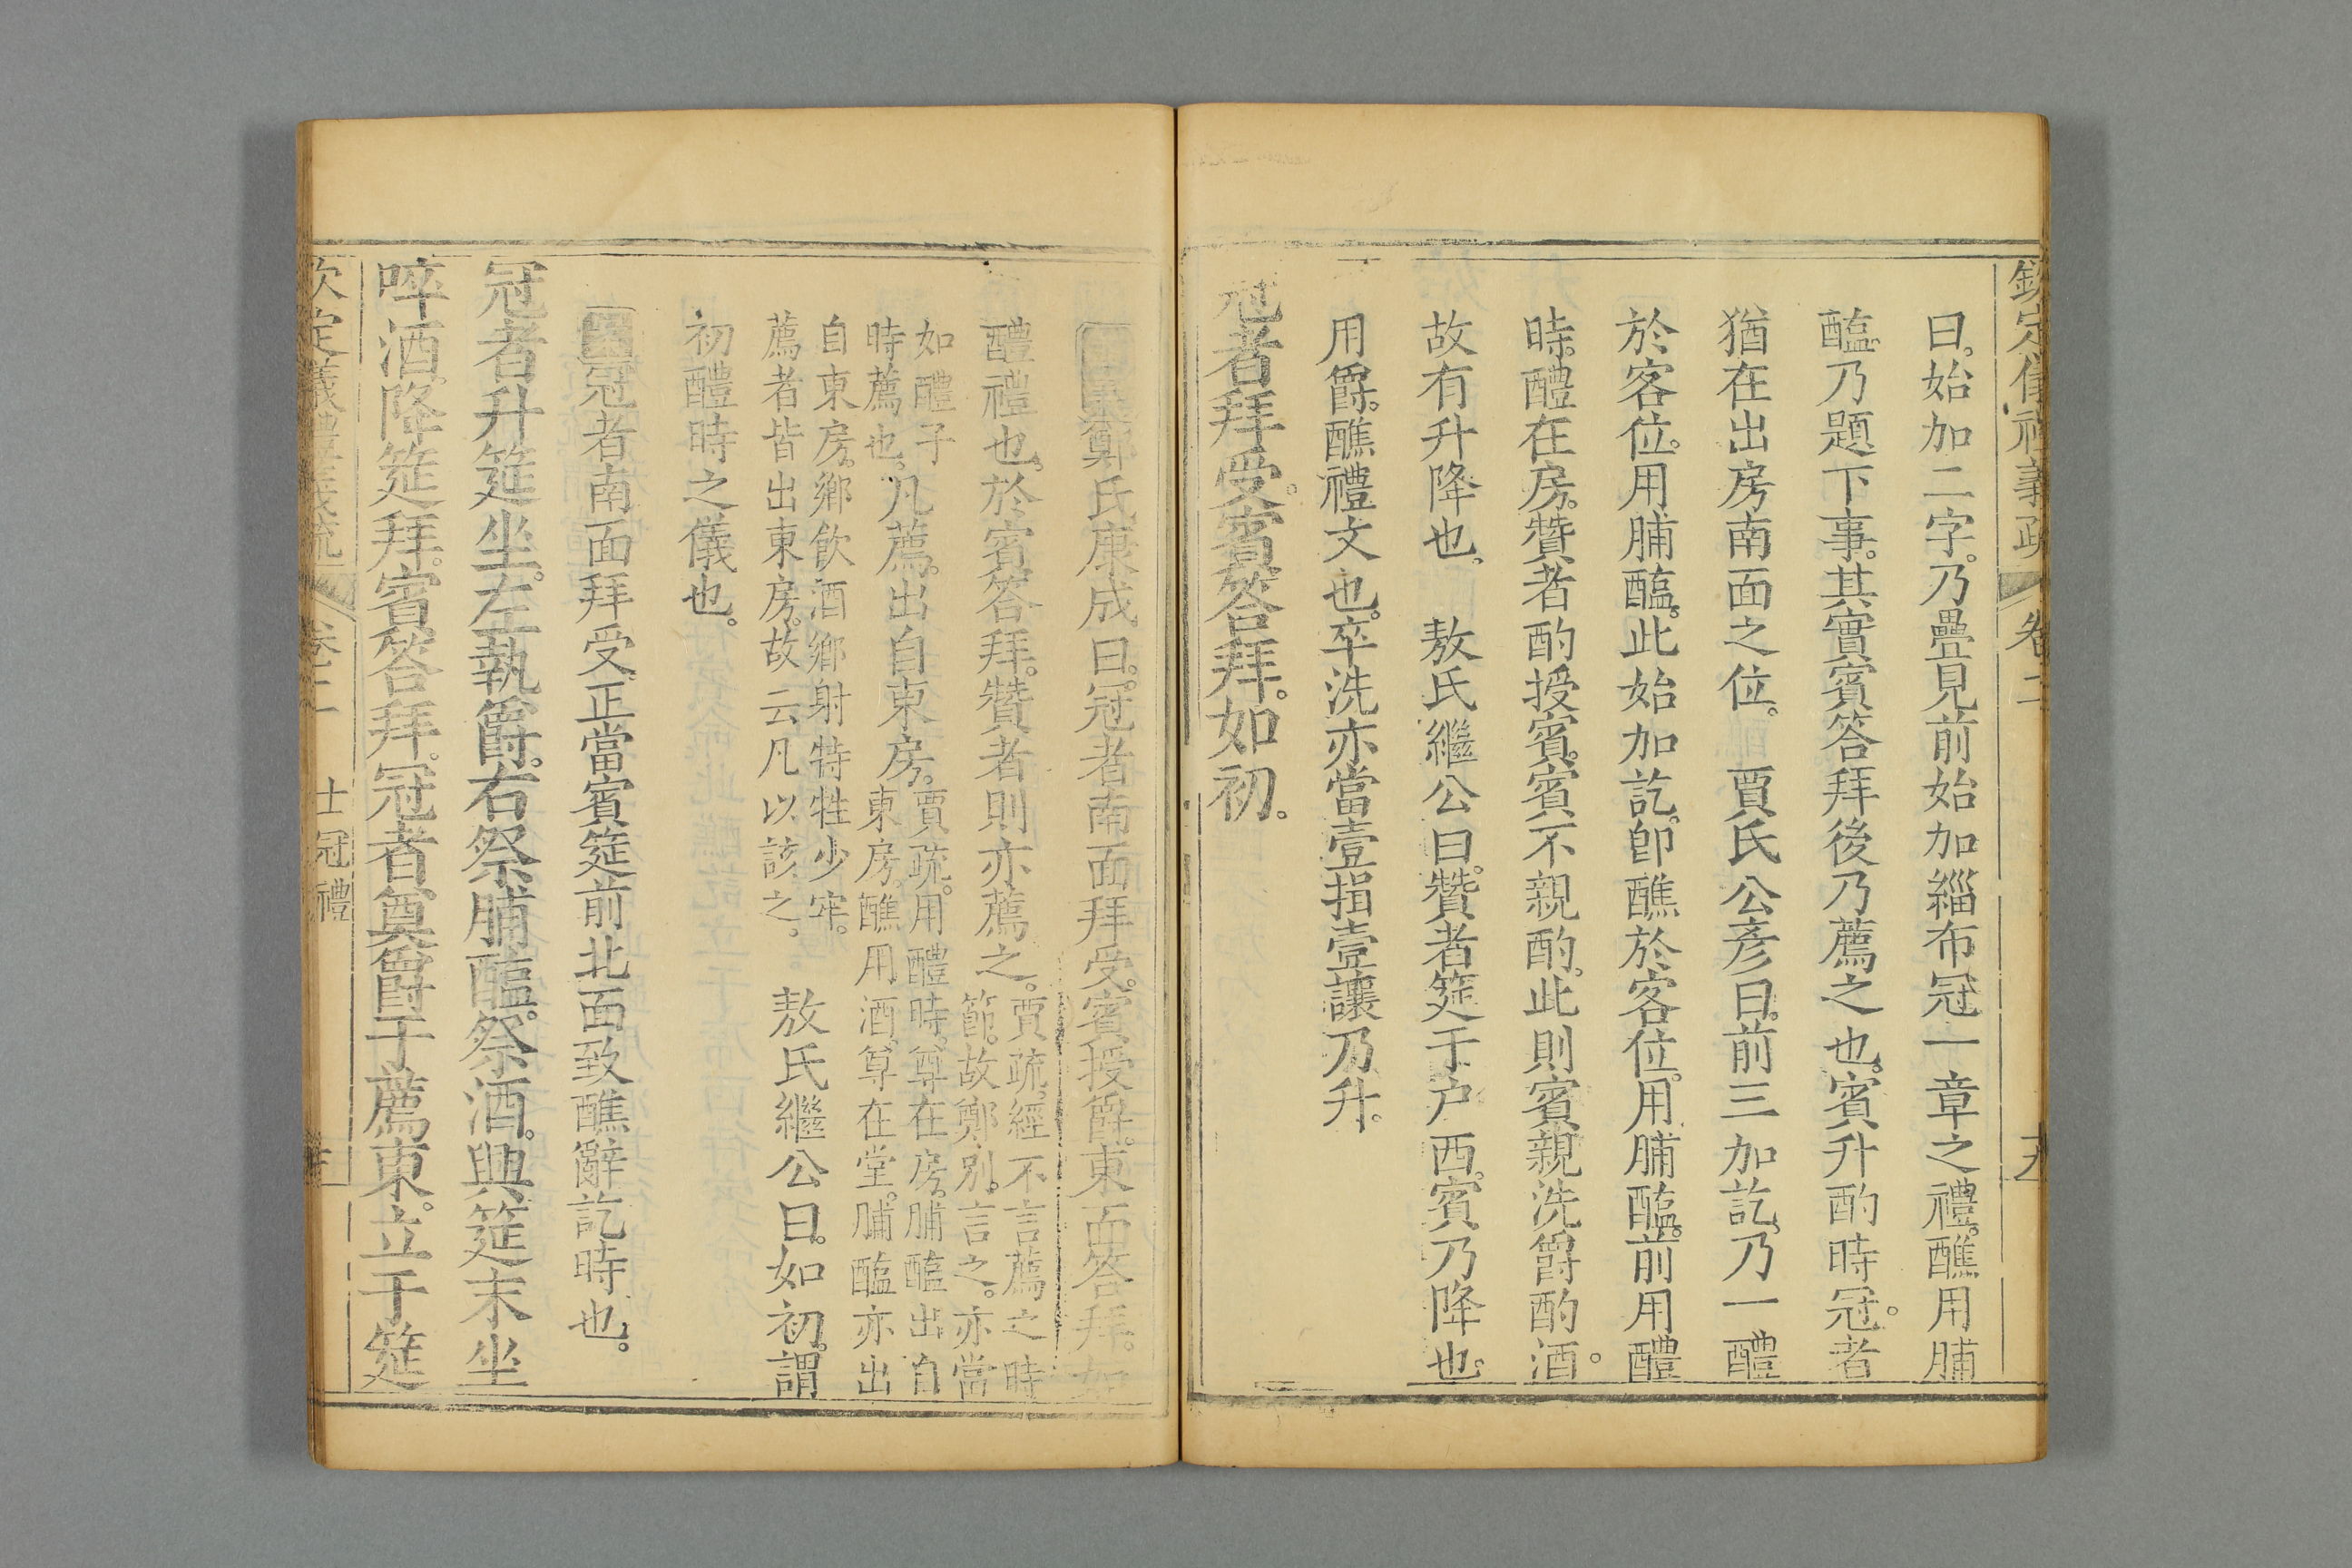 欽定儀禮義疏 卷二
曰。始加二字。乃疊見前始加緇布冠一章之禮。醮用脯
醢。乃題下事。其實賓答拜後乃薦之也。賓升酌時。冠者
猶在出房南面之位。 賈氏公彥曰。前三加訖。乃一醴
於客位。用脯醢。此始加訖。卽醮於客位。用脯醢。前用醴
時。醴在房。贊者酌授賓。賓不親酌。此則賓親洗爵酌酒。
故有升降也。 敖氏繼公曰。贊者筵于戶西。賓乃降也。
用爵。醮禮文也。卒洗亦當壹揖壹讓乃升。
冠者拜受。賓答拜。如初。
鄭氏康成曰。冠者南面拜受。賓授爵。東面答拜。如
醴禮也。於賓答拜。贊者則亦薦之。賈疏。經不言薦之時
節。故鄭別言之。亦當
如醴子
時薦也。凡薦。出自東房。賈疏。用醴時。尊在房。脯醢出自
東房。醮用酒。尊在堂。脯醢亦出
自東房。鄉飲酒鄉射特牲少牢。
薦者皆出東房。故云凡以該之。 敖氏繼公曰。如初。謂
初醴時之儀也。
冠者南面拜受。正當賓筵前北面致醮辭訖時也。
冠者升筵坐。左執爵。右祭脯醢。祭酒。興。筵末坐
啐酒。降筵拜。賓答拜。冠者奠爵于薦東。立于筵
欽定儀禮義疏 卷二 士冠禮